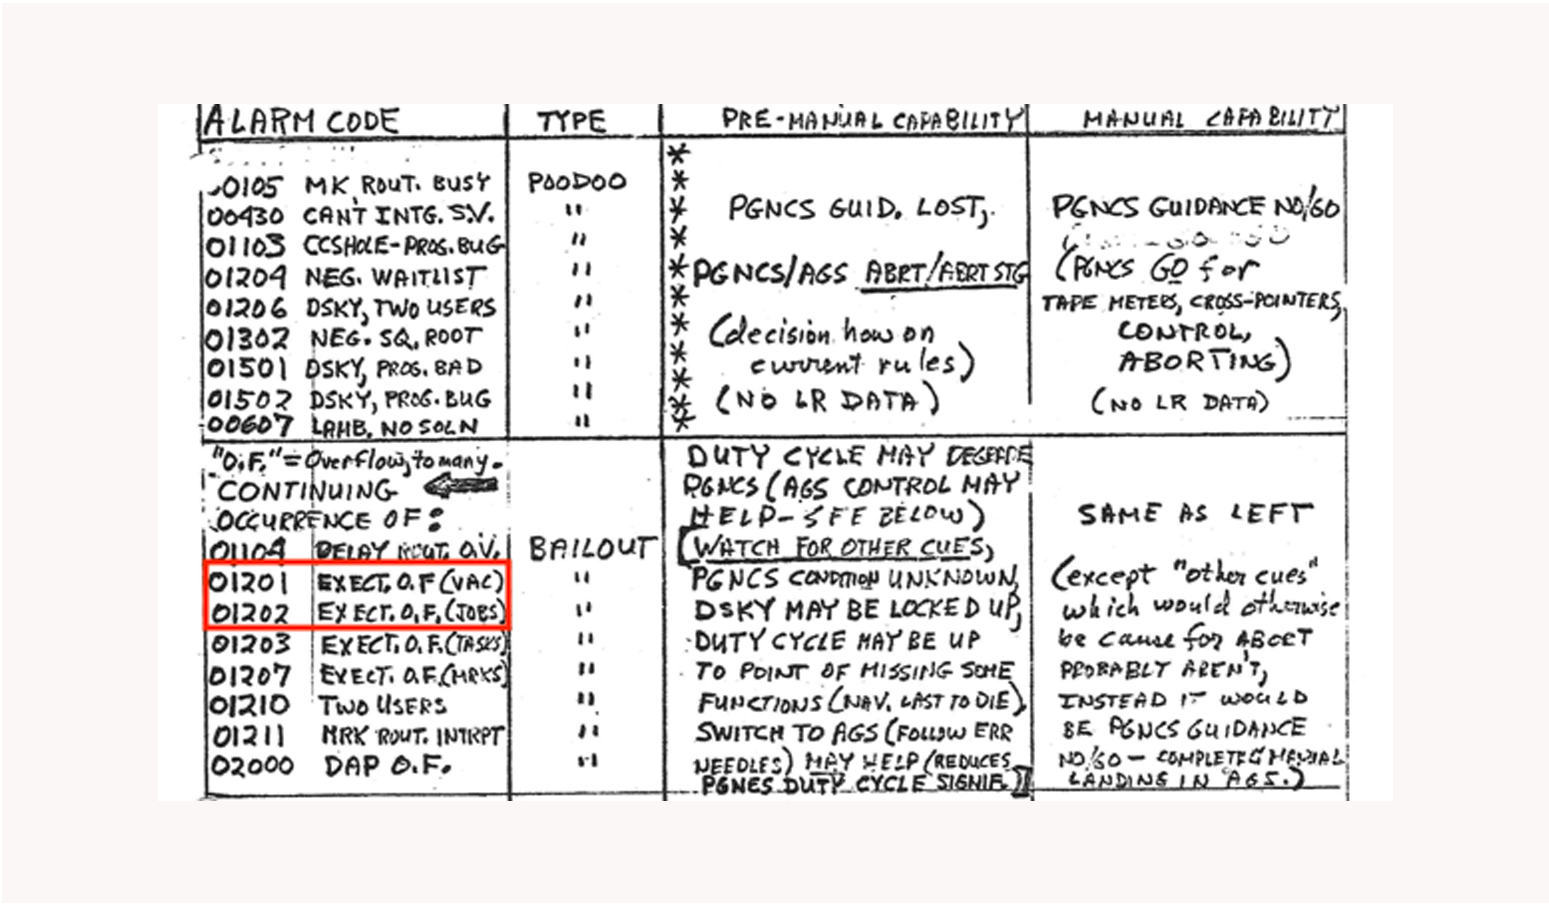 ALARM CODE TYPE PRE-MANUAL CAPABILITY MANUAL CAPABILITY
00105 MK ROUT. BUSY POODOO
00430 CAN'T INTG. S.V. "
01103 CCSHOLE-PROG. BUG "
01204 NEG. WAITLIST "
01206 DSKY, TWO USERS "
01302 NEG. SQ. ROOT "
01501 DSKY, PROG. BAD "
01502 DSKY, PROG. BUG "
00607 LAMB. NO SOLN "
*
*
*
*
*
*
*
*
*
*
PGNCS GUID. LOST,
PGNCS/AGS ABRT/ABRT STG
(decision how on
current rules)
(NO LR DATA)
PGNCS GUIDANCE NO/GO
(PGNCS GO for
TAPE METERS, CROSS-POINTERS,
CONTROL,
ABORTING)
(NO LR DATA)
"O.F." = Overflow, to many.
CONTINUING
OCCURRENCE OF:
01104 DELAY ROUT. O.V. BAILOUT
01201 EXECT. O.F (VAC) "
01202 EXECT. O.F. (JOBS) "
01203 EXECT. O.F. (TASKS) "
01207 EXECT. O.F. (MRKS) "
01210 TWO USERS "
01211 MRK ROUT. INTRPT "
02000 DAP O.F. "
DUTY CYCLE MAY DEGRADE
PGNCS (AGS CONTROL MAY
HELP - SEE BELOW)
[WATCH FOR OTHER CUES,
PGNCS CONDITION UNKNOWN,
DSKY MAY BE LOCKED UP,
DUTY CYCLE MAY BE UP
TO POINT OF MISSING SOME
FUNCTIONS (NAV. LAST TO DIE).
SWITCH TO AGS (FOLLOW ERR
NEEDLES) MAY HELP (REDUCES
PGNCS DUTY CYCLE SIGNIF.)]
SAME AS LEFT
(except "other cues"
which would otherwise
be cause for ABORT
PROBABLY AREN'T,
INSTEAD IT WOULD
BE PGNCS GUIDANCE
NO/GO - COMPLETE MANUAL
LANDING IN AGS.)